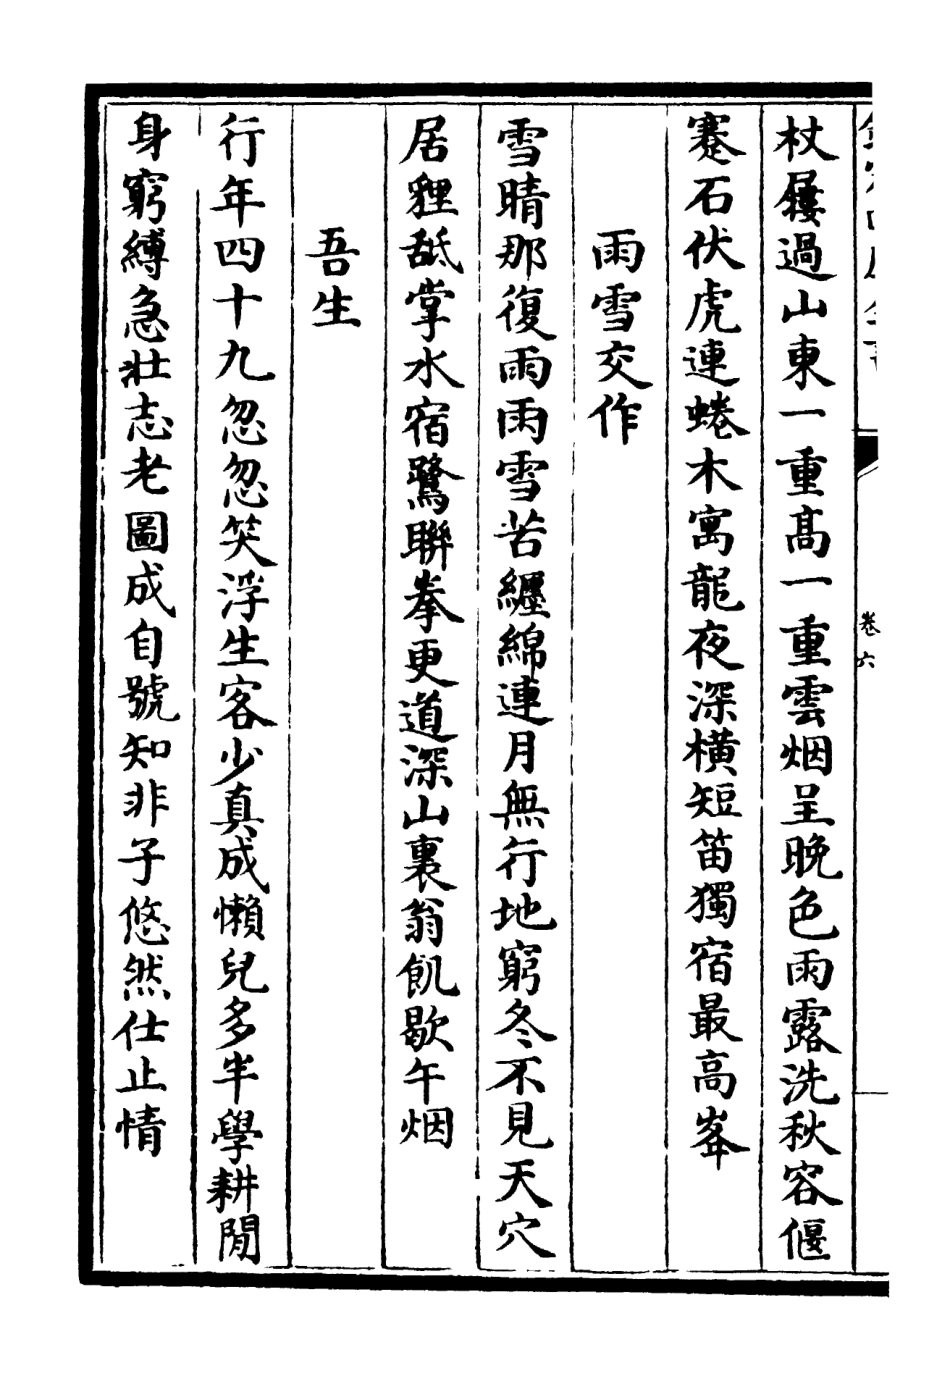 卷六
杖屨過山東一重髙一重雲烟呈晚色雨露洗秋容偃
蹇石伏虎連蜷木寓龍夜深橫短笛獨宿最高峯
雨雪交作
雪晴那復雨雨雪苦纒綿連月無行地窮冬不見天穴
居貍舐掌水宿鷺聯拳更道深山裏翁飢歇午烟
吾生
行年四十九忽忽笑浮生客少真成懶兒多半學耕閒
身窮縛急壯志老圖成自號知非子悠然仕止情